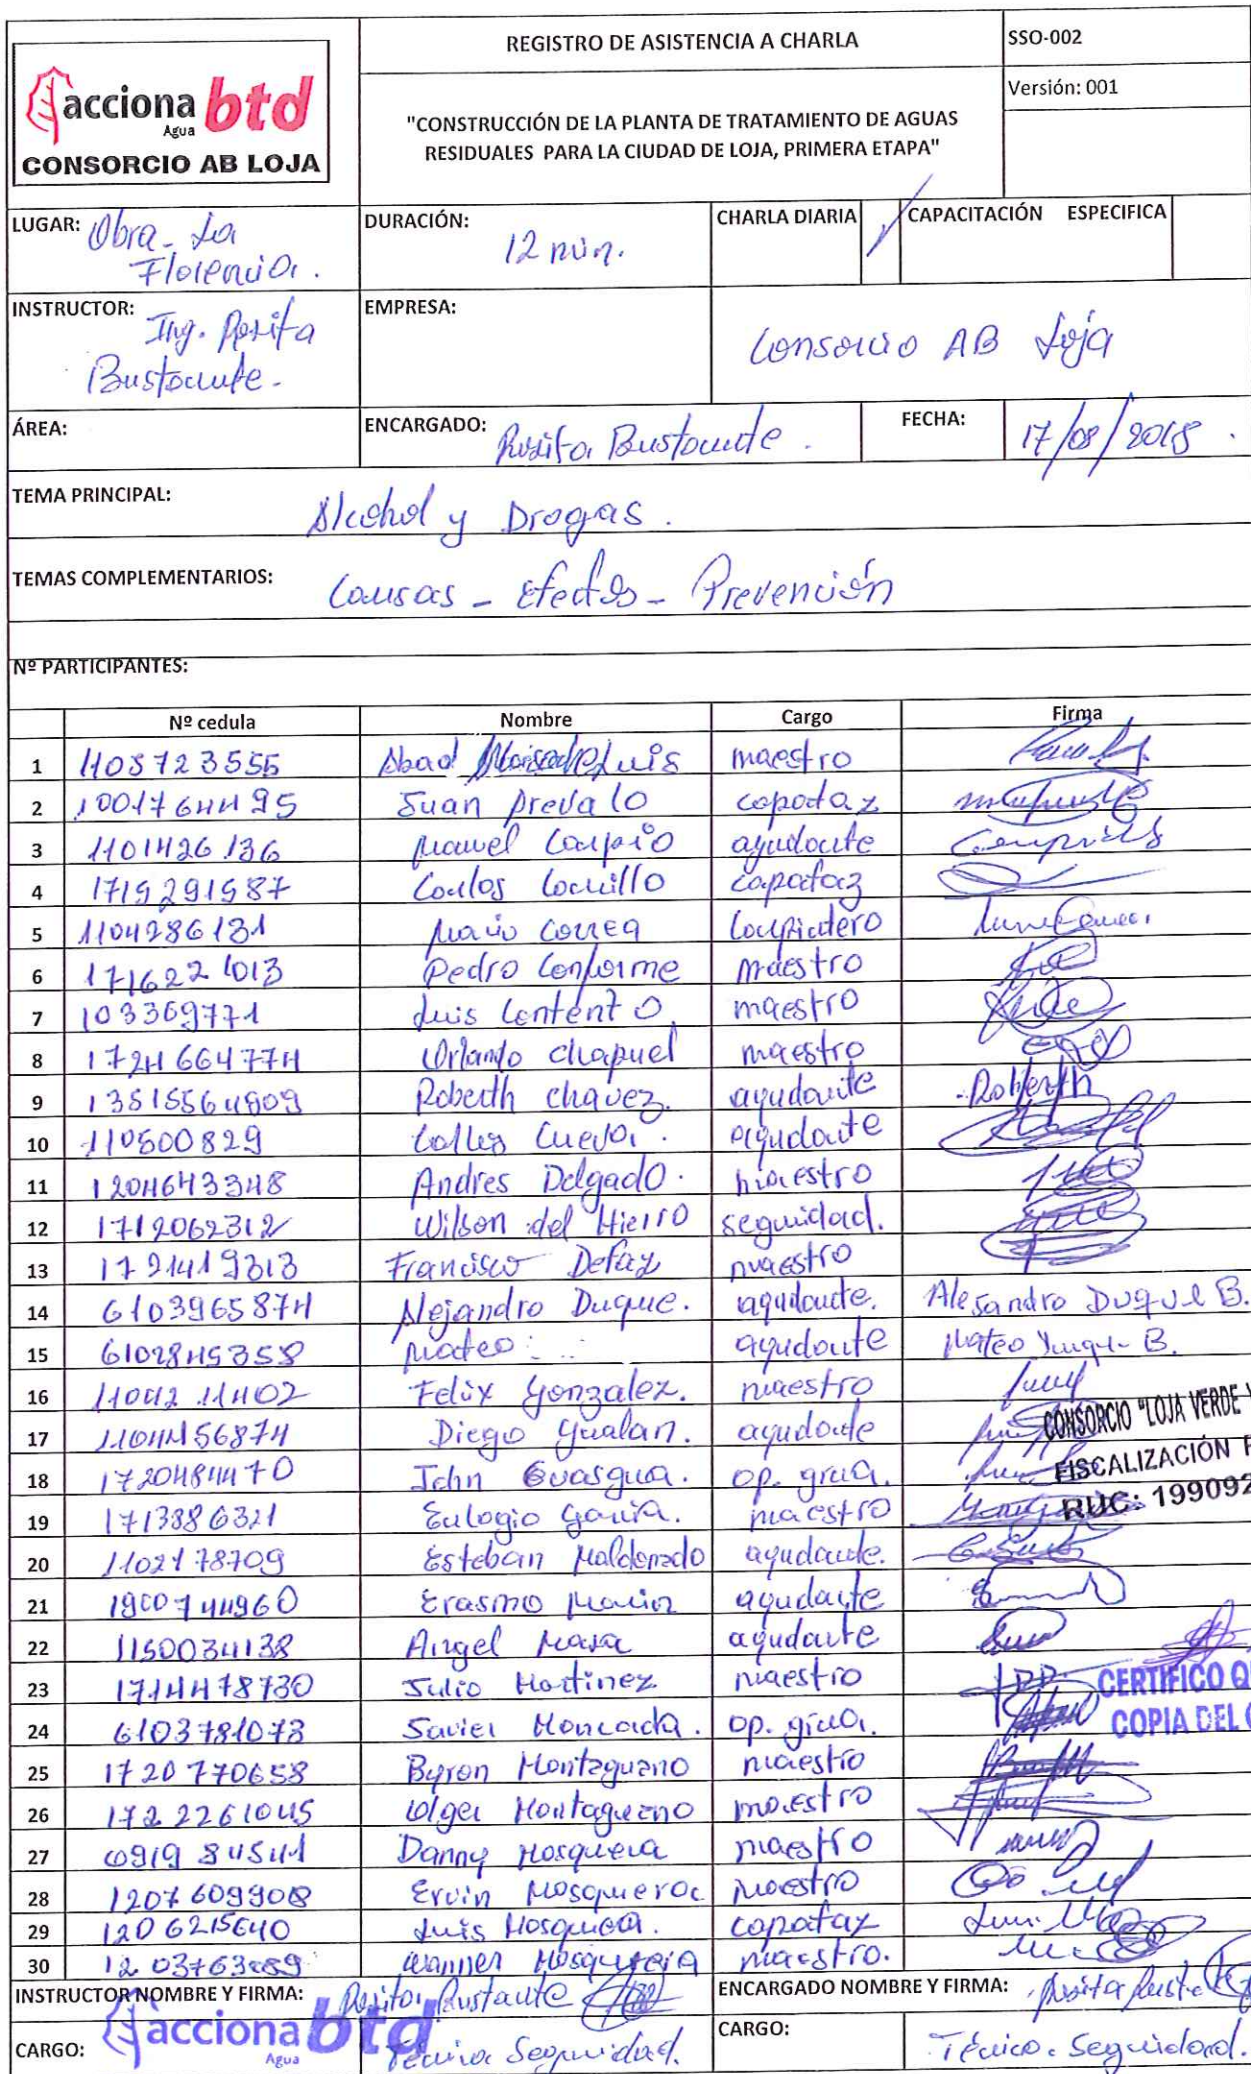 acciona btd
Agua
CONSORCIO AB LOJA
REGISTRO DE ASISTENCIA A CHARLA
SSO-002
Versión: 001
"CONSTRUCCIÓN DE LA PLANTA DE TRATAMIENTO DE AGUAS
RESIDUALES PARA LA CIUDAD DE LOJA, PRIMERA ETAPA"
LUGAR: Obra - La
Florencia.
DURACIÓN: 12 min.
CHARLA DIARIA
CAPACITACIÓN ESPECIFICA
INSTRUCTOR: Ing. Rosita
Bustamante.
EMPRESA: Consorcio AB Loja
ÁREA:
ENCARGADO: Rosita Bustamante.
FECHA: 17/08/2018.
TEMA PRINCIPAL: Alcohol y Drogas.
TEMAS COMPLEMENTARIOS: Causas - Efectos - Prevención
Nº PARTICIPANTES:
Nº cedula Nombre Cargo Firma
1 Abad Luis maestro
2 Juan Arevalo capataz
3 1101426136 Manuel Carpio ayudante
4 1719291987 Carlos capataz
5 1104286131 Mario Correa
6 1716221013 Pedro Conforme maestro
7 103369771 Luis Contento maestro
8 1724664774 Orlando Chapuel maestro
9 Roberth Chavez. ayudante Roberth
10 110500829 Cueva. ayudante
11 1204643348 Andres Delgado. maestro
12 1712062312 Wilson del Hierro seguridad.
13 Francisco Defaz maestro
14 6103965874 Alejandro Duque. ayudante. Alejandro Duque B.
15 6102845358 Mateo ayudante Mateo Duque B.
16 1104211402 Felix Gonzalez. maestro
17 1104156874 Diego Gualan. ayudante
18 1720484470 John Guasgua. op. grua.
19 1713886321 Eulogio Gavia. maestro
20 1102178709 Esteban Maldonado ayudante.
21 1900744960 Erasmo Marin ayudante
22 1150034138 Angel Masa ayudante
23 1714478730 Julio Martinez maestro
24 6103781073 Javier Moncada. op. grua.
25 1720770658 Byron Montaguano maestro
26 1722261045 Olger Montagueno maestro
27 Danny Mosquera maestro
28 1207609908 Ervin Mosquera maestro
29 1206215640 Luis Mosquera. capataz
30 Mosquera maestro.
CONSORCIO "LOJA VERDE
FISCALIZACIÓN
RUC: 199092
CERTIFICO Q
COPIA DEL
INSTRUCTOR NOMBRE Y FIRMA: Rosita Bustamante
ENCARGADO NOMBRE Y FIRMA: Rosita
CARGO: Técnica Seguridad.
acciona btd
Agua
CARGO: Técnico. Seguridad.